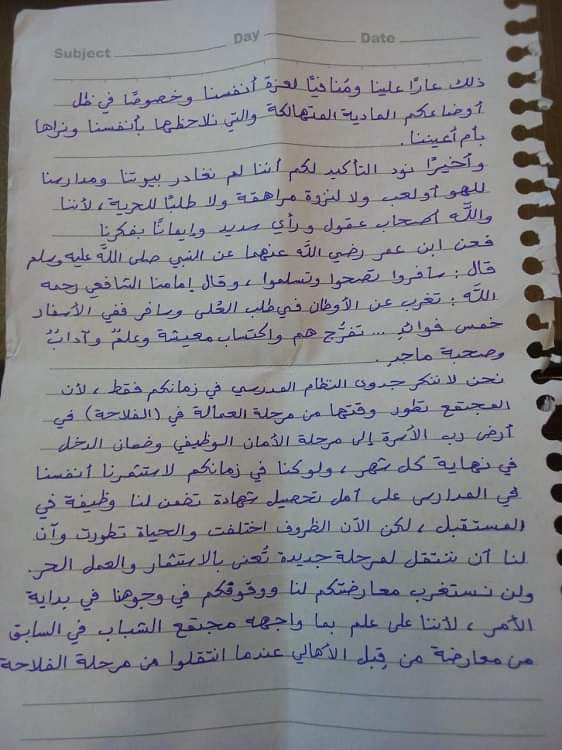 Subject Day Date
ذلك عارًا علينا ومُنافيًا لعزة أنفسنا وخصوصًا في ظل
أوضاعكم المادية المتهالكة والتي نلاحظها بأنفسنا ونراها
بأم أعيننا.
وأخيرًا نود التأكيد لكم أننا لم نغادر بيوتنا ومدارسنا
للهو أو لعب ولا لنزوة مراهقة ولا طلبًا للحرية، لأننا
والله أصحاب عقول ورأي سديد وإيمانًا بفكرنا
فعن ابن عمر رضي الله عنهما عن النبي صلى الله عليه وسلم
قال: سافروا تصحوا وتسلموا، وقال إمامنا الشافعي رحمه
الله: تغرب عن الأوطان في طلب العُلى وسافر ففي الأسفار
خمس فوائدٍ ... تفرُّج همٍ واكتساب معيشة وعلمٌ وآدابٌ
وصحبة ماجدِ.
نحن لا ننكر جدوى النظام المدرسي في زمانكم فقط، لأن
المجتمع تطور وقتها من مرحلة العمالة في (الفلاحة) في
أرض رب الأسرة إلى مرحلة الأمان الوظيفي وضمان الدخل
في نهاية كل شهر، ولو كنا في زمانكم لاستثمرنا أنفسنا
في المدارس على أمل تحصيل شهادة تضمن لنا وظيفة في
المستقبل، لكن الآن الظروف اختلفت والحياة تطورت وآن
لنا أن ننتقل لمرحلة جديدة تُعنى بالاستثمار والعمل الحر.
ولن نستغرب معارضتكم لنا ووقوفكم في وجوهنا في بداية
الأمر، لأننا على علم بما واجهه مجتمع الشباب في السابق
من معارضة من قِبل الأهالي عندما انتقلوا من مرحلة الفلاحة